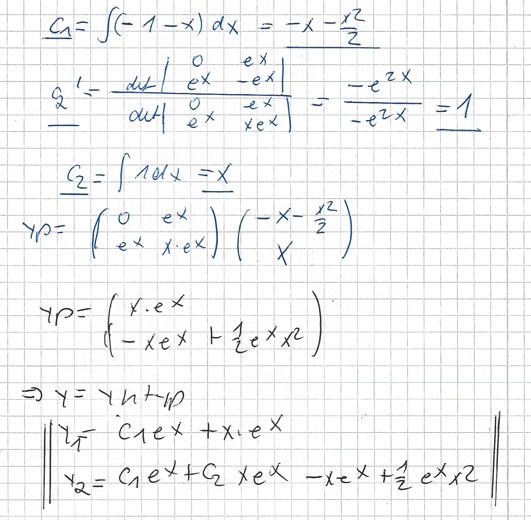 C1 = ∫(-1-x) dx = -x - x²/2
C2' = det| 0 e^x ; e^x -e^x | / det| 0 e^x ; e^x xe^x | = -e^2x / -e^2x = 1
C2 = ∫ 1 dx = x
yp = ( 0 e^x ; e^x x·e^x ) ( -x - x²/2 ; x )
yp = ( x·e^x ; -xe^x + 1/2 e^x x² )
⇒ y = yh + yp
y1 = C1 e^x + x·e^x
y2 = C1 e^x + C2 xe^x - xe^x + 1/2 e^x x²